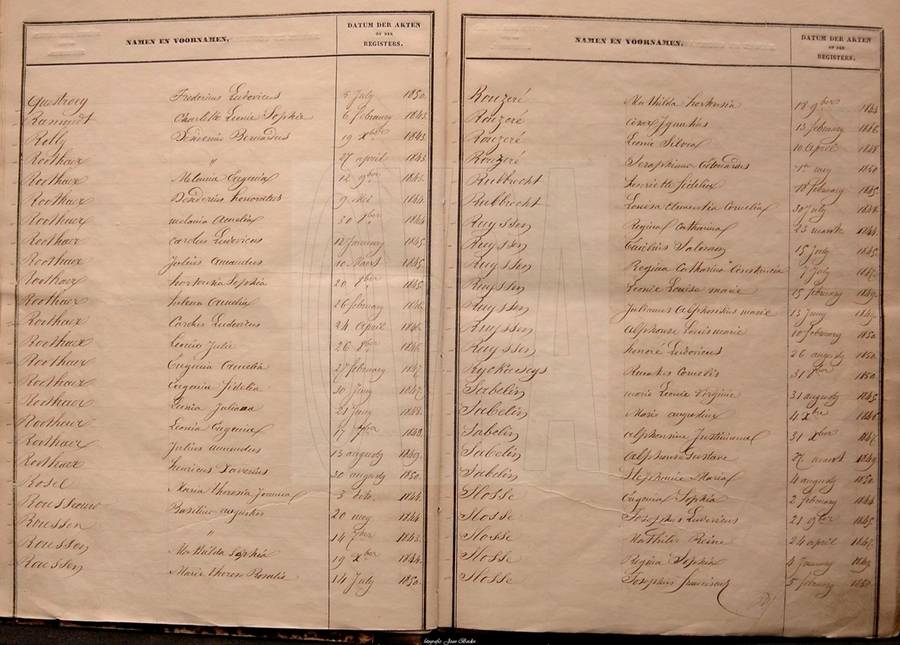 NAMEN EN VOORNAMEN,
DATUM DER AKTEN
OF DER
REGISTERS.
Fredericus Ludovicus 5 July 1850
Ramondt Charlotte Leonie Sophie 6 february 1843
Rolly Desiderius Bernardus 19 xber 1843
Roothaer " 27 april 1843
Roothaer Melania Eugenia 12 9ber 1843
Roothaer Desiderius honoratus 9 mei 1844
Roothaer melania Amelia 30 8ber 1844
Roothaer Carolus Ludovicus 12 January 1845
Roothaer Julius Amandus 10 1845
Roothaer hortensia Sophia 20 8ber 1845
Roothaer Amelia 26 february 1846
Roothaer Carolus Ludovicus 24 April 1846
Roothaer Leonia Julie 26 8ber 1846
Roothaer Eugenia Amelia 27 february 1847
Roothaer Eugenia Fidelia 30 Juny 1847
Roothaer Leonia Juliana 21 Juny 1848
Roothaer Leonia Eugenia 17 1848
Roothaer Julius Amandus 13 augusty 1849
Roothaer henricus Xaverius 20 augusty 1850
Rosel Maria theresia Joanna 3 1844
Basilius augustus 20 may 1844
Roussen " 14 7ber 1843
Roussen Mathilda Sophia 19 xber 1844
Roussen Marie theres Rosalie 14 July 1850
NAMEN EN VOORNAMEN,
DATUM DER AKTEN
OF DER
REGISTERS.
Rouzeré Mathilda hortensia 18 9ber 1843
Rouzeré Cesar Ignatius 13 february 1846
Rouzeré Leonie Silvia 10 april 1848
Rouzeré Seraphinus Edouardus may 1850
Rubbrecht henriette fidelia 18 february 1845
Rubbrecht Louisa Clementia Cornelia 30 July 1848
Ruyssen Regina Catharina 23 maarte 1844
Ruyssen Salomon 15 July 1845
Ruyssen Regina Catharina Constantia 7 July 1847
Ruyssen Leonie Louise marie 15 february 1849
Ruyssen Julianus Alphonsius marie 13 Juny 1849
Ruyssen alphonse Louis marie 10 february 1850
Ruyssen honoré Ludovicus 26 augusty 1850
Ryckaseys Cornelis 31 8ber 1850
Sabelin marie Leonie Virginie 31 augusty 1845
Sabelin Marie augustine 4 xber 1846
Sabelin alphonsine Justiniana 31 xber 1847
Sabelin Alphonse Gustave 27 maart 1849
Sabelin Stephanie Maria 4 augusty 1850
Slosse Eugenia Sophia 2 february 1844
Slosse Josephus Ludovicus 21 9ber 1845
Slosse Mathilde Reine 24 april 1847
Slosse Regina Sophia 4 January 1849
Slosse Josephus 5 february 1850
fotografie